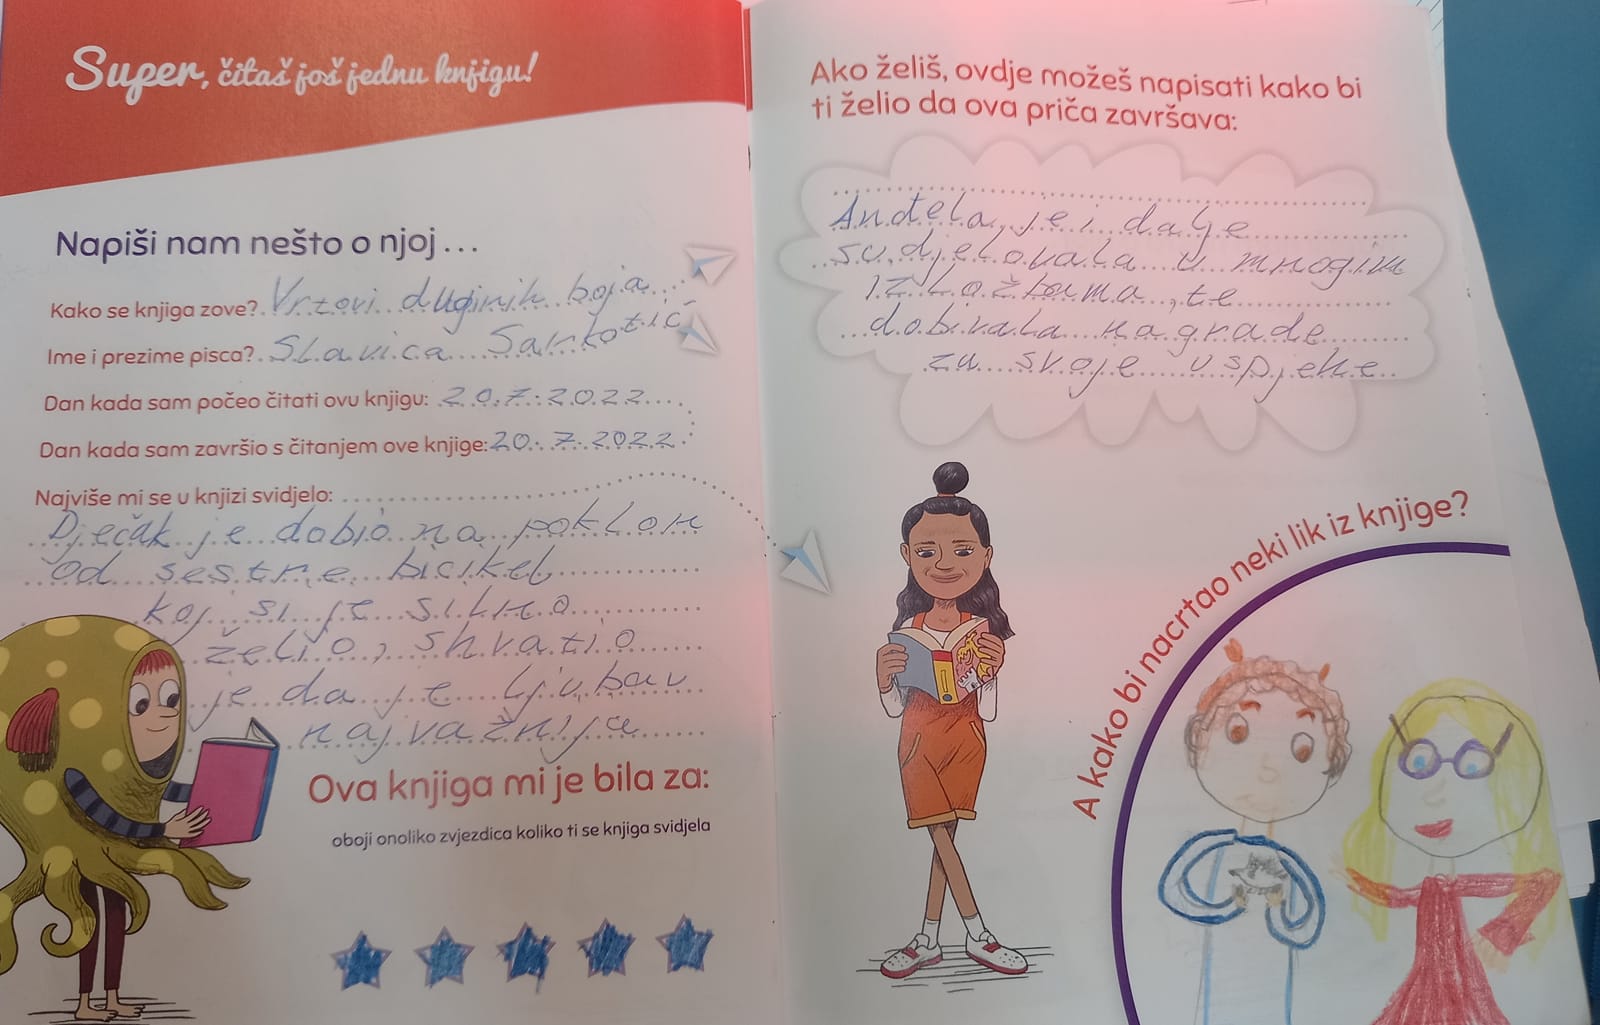 Super, čitaš još jednu knjigu!
Napiši nam nešto o njoj...
Kako se knjiga zove? Vrtovi duginih boja
Ime i prezime pisca? Slavica Sarkotić
Dan kada sam počeo čitati ovu knjigu: 20.7.2022
Dan kada sam završio s čitanjem ove knjige: 20.7.2022
Najviše mi se u knjizi svidjelo:
Dječak je dobio na poklon
od sestre bicikel
koj si je silno
želio, shvatio
je da je ljubav
najvažnija
Ova knjiga mi je bila za:
oboji onoliko zvjezdica koliko ti se knjiga svidjela
Ako želiš, ovdje možeš napisati kako bi
ti želio da ova priča završava:
Anđela je i dalje
sudjelovala u mnogim
izložbama, te
dobivala nagrade
za svoje uspjehe
A kako bi nacrtao neki lik iz knjige?